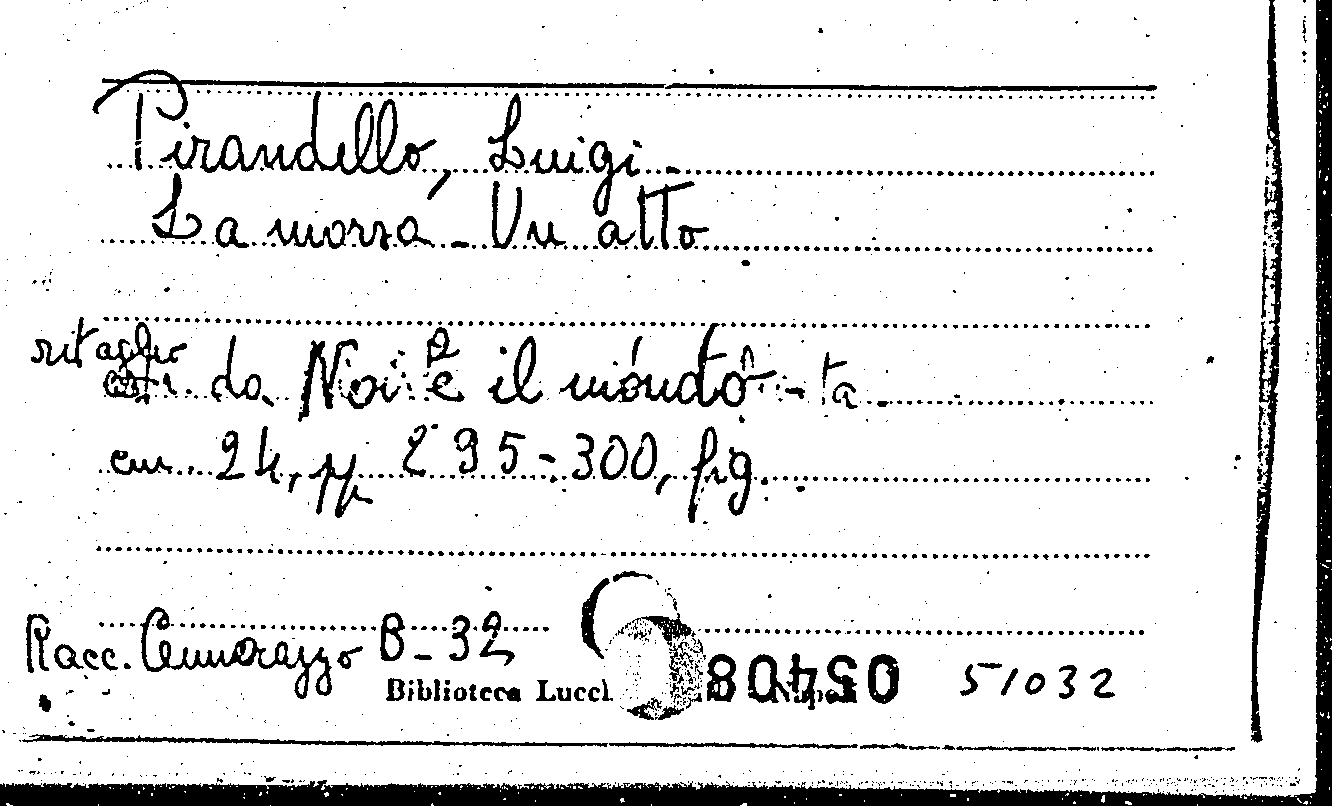 Pirandello, Luigi.
La morsa - Un atto
ritaglio
da Noi e il mondo - ta.
cm. 24, pp 295-300, fig.
Racc. Cennorazzo B-32
Biblioteca Lucch
053408 51032